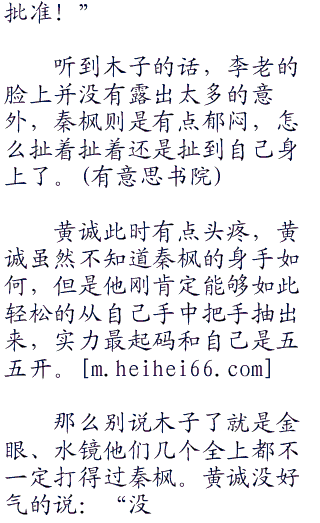 批准！”
听到木子的话，李老的
脸上并没有露出太多的意
外，秦枫则是有点郁闷，怎
么扯着扯着还是扯到自己身
上了。(有意思书院)
黄诚此时有点头疼，黄
诚虽然不知道秦枫的身手如
何，但是他刚肯定能够如此
轻松的从自己手中把手抽出
来，实力最起码和自己是五
五开。[m.heihei66.com]
那么别说木子了就是金
眼、水镜他们几个全上都不
一定打得过秦枫。黄诚没好
气的说：“没